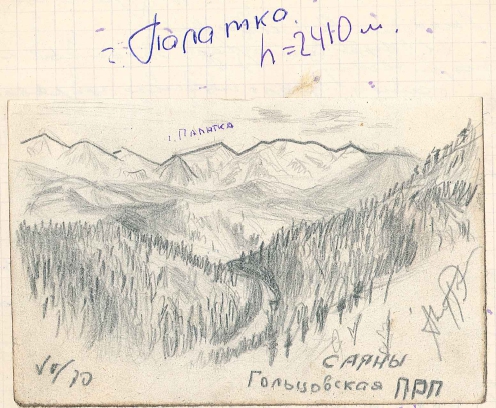 г. Палатка.
h=2410 м.
г. Палатка
VII/70
САЯНЫ
Гольцовская ПРП